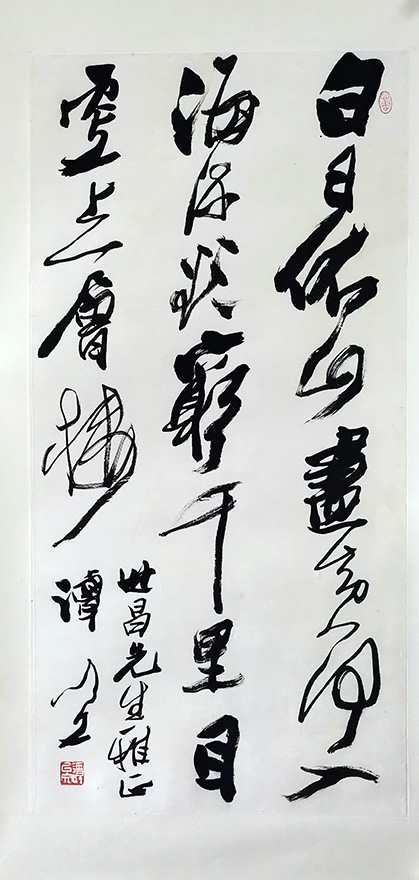 白日依山盡黄河入
海流欲窮千里目
更上一層樓
世昌先生雅正